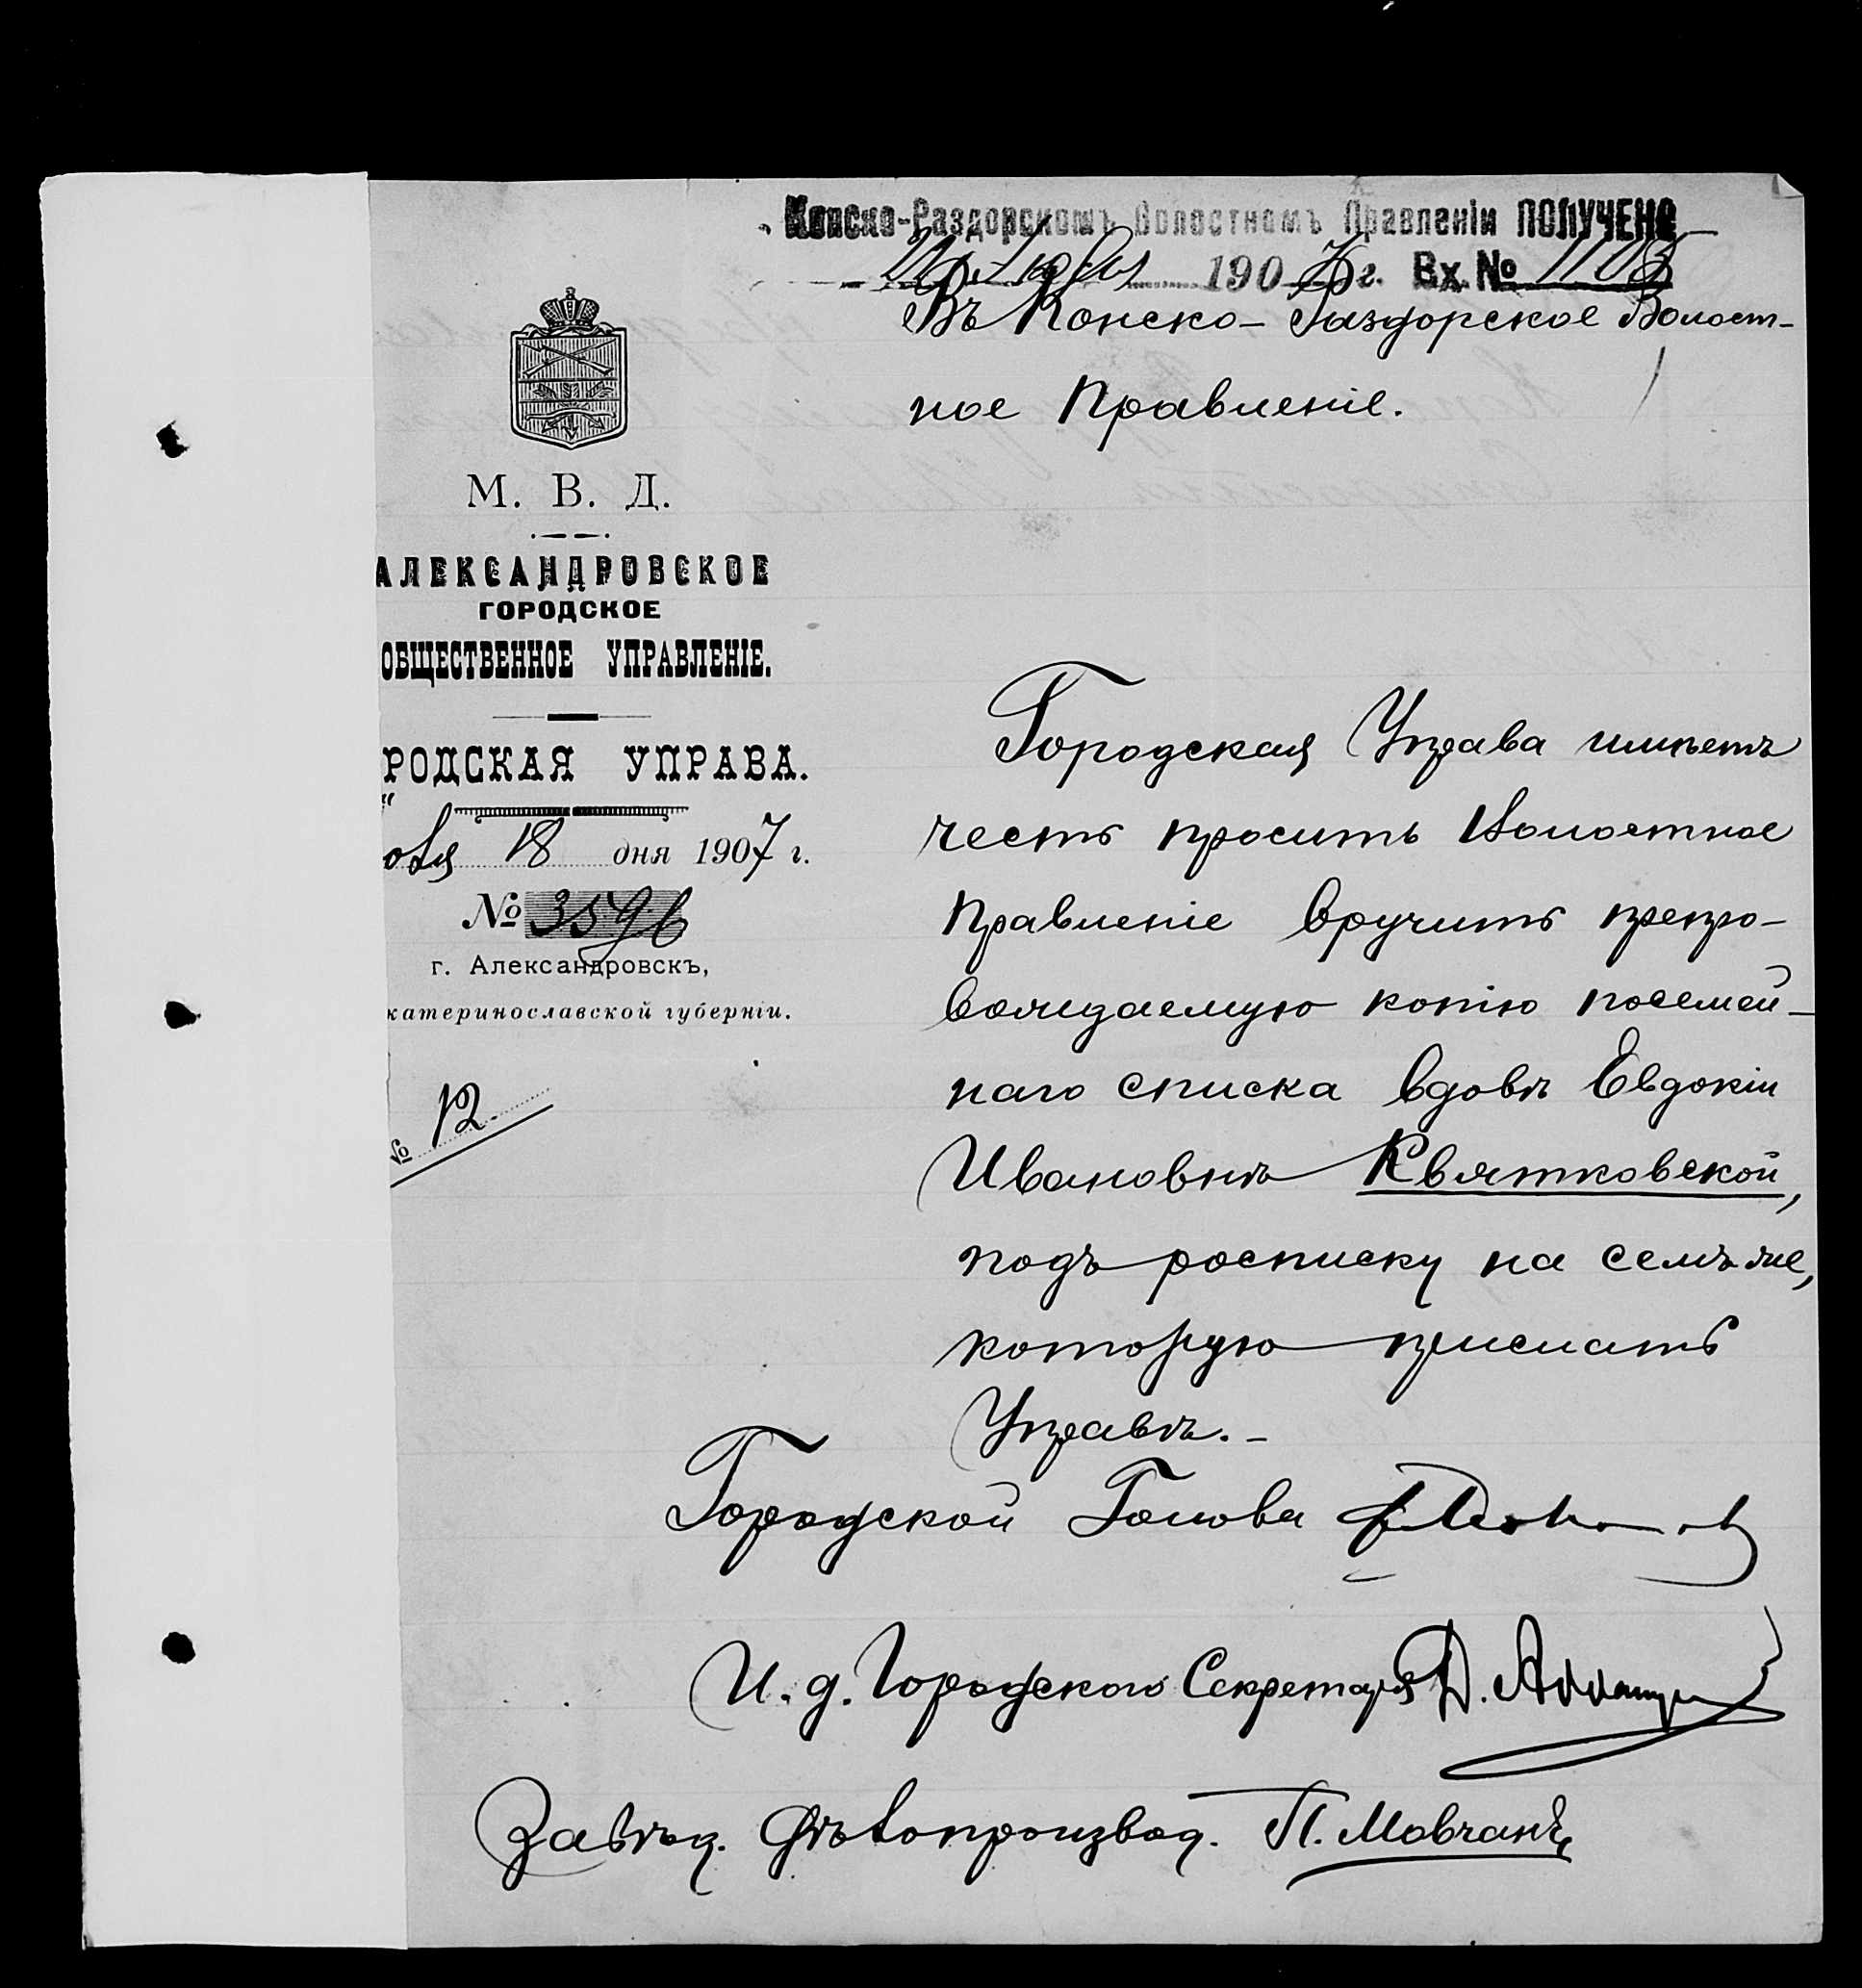 Конско-Раздорскомъ Волостномъ Правленіи ПОЛУЧЕНО
190 7 г. Вх. № 1103
Въ Конско-Раздорское Волост-
ное Правленіе.
М. В. Д.
АЛЕКСАНДРОВСКОЕ
ГОРОДСКОЕ
ОБЩЕСТВЕННОЕ УПРАВЛЕНІЕ.
РОДСКАЯ УПРАВА.
18 дня 1907 г.
№ 3596
г. Александровскъ,
катеринославской губерніи.
№ 12
Городская Управа имѣетъ
честь просить Волостное
Правленіе вручить препро-
вождаемую копію посемей-
наго списка вдовѣ Евдокіи
Ивановнѣ Квятковской,
подъ росписку на семъ же,
которую прислать
Управѣ.-
Городской Голова
И. д. Городского Секретаря Д.
Завѣд. Дѣлопроизвод. П. Мовчанъ